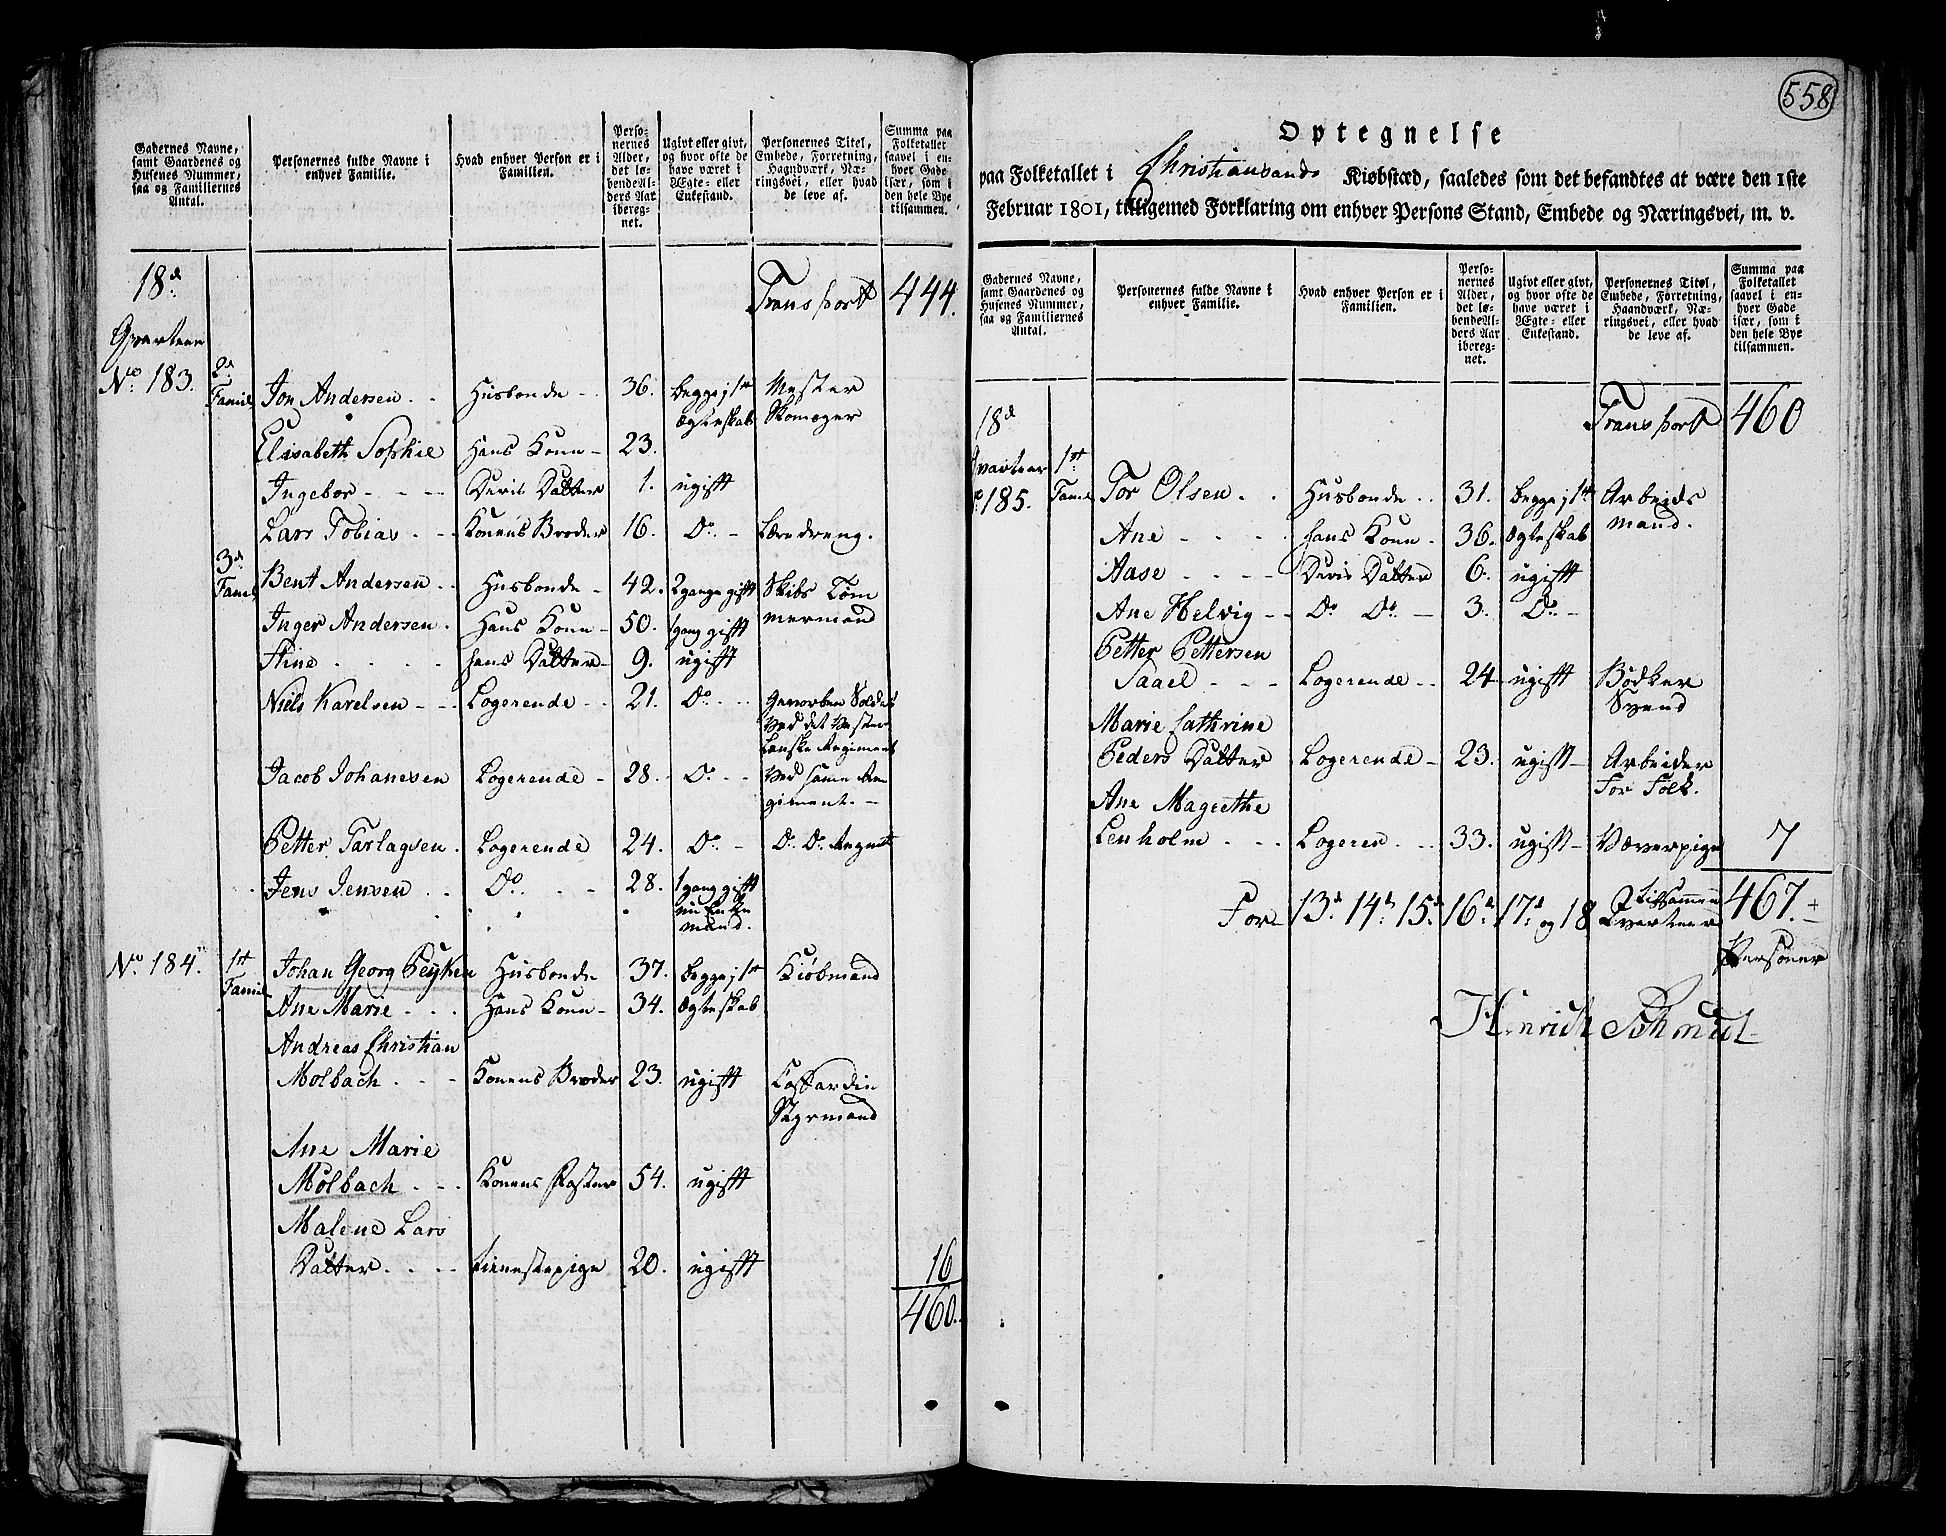 Gadernes Navne, samt Gaardenes og Husenes Nummer, saa og Familiernes Antal.
Personernes fulde Navne i enhver Familie.
Hvad enhver Person er i Familien.
Personernes Alder, det løbende Alders Aar iberegnet.
Ugivt eller givt, og hvor ofte de have været i Ægte- eller Enkestand.
Personernes Titel, Embede, Forretning, Haandværk, Næringsvei, eller hvad de leve af.
Summa paa Folketallet saavel i enhver Gade især, som i den hele Bye tilsammen.
18d. Transport 444.
Qvarteer
No. 183. 2d Famil Jon Andersen Husbonde 36. begge j 1st Mester
Ægteskab Skomager
Elisabeth Sophie Hans Konn 23.
Ingebor Deris Datter 1. ugift
Lars Tobias Konens Broder 16. Do Læredreng.
3d Famil Bent Andersen Husbonde 42. 2gange gift Skibs Tøm
Inger Andersen Hans Konn 50. 1gang gift mermand
Stine hans Datter 9. ugift
Niels Karelsen Logerende 21. Do Gevorben Soldat
Ved det Vester
Lenske Regiment
Jacob Johanesen Logerende 28. Do Ved samme Re
giment.
Petter Tarlagsen Logerende 24. Do Do Do Regmt
Jens Jensen Do 28. 1gang gift
nu Enke
mand.
No. 184. 1st Famil Johan Georg Peyken Husbonde 37. begge j 1st Kiøbmand
Ane Marie Hans Konn 34. Ægteskab
Andreas Christian
Molbach Konens Broder 23. ugift Coffardie
Styrmand
Ane Marie
Molbach Konens Faster 54. ugift
Malene Lars
Datter tienestepige 20. ugift 16
460.
558
Optegnelse
paa Folketallet i Christiansands Kiøbstæd, saaledes som det befandtes at være den 1ste
Februar 1801, tilligemed Forklaring om enhver Persons Stand, Embede og Næringsvei, m. v.
Gadernes Navne, samt Gaardenes og Husenes Nummer, saa og Familiernes Antal.
Personernes fulde Navne i enhver Familie.
Hvad enhver Person er i Familien.
Personernes Alder, det løbende Alders Aar iberegnet.
Ugivt eller givt, og hvor ofte de have været i Ægte- eller Enkestand.
Personernes Titel, Embede, Forretning, Haandværk, Næringsvei, eller hvad de leve af.
Summa paa Folketallet saavel i enhver Gade især, som i den hele Bye tilsammen.
18d Transport 460
Qvarteer
185. 1st Famil Tor Olsen Husbonde 31. begge j 1st Arbeids
Ane hans Konn 36. Ægteskab mand.
Aase Deris Datter 6. ugift
Ane Helvig Do Do 3. Do
Petter Pettersen
Saael Logerende 24 ugift Bødker
Svend
Marie Cathrine
Peders Datter Logerende 23. ugift Arbeider
For Folk.
Ane Magrethe
Lenholm Logeren 33. ugift Væverpige 7
For 13d 14d 15d 16d 17d og 18 Qvarteer Tilsammen 467.
Personer
Henrich Schmidt